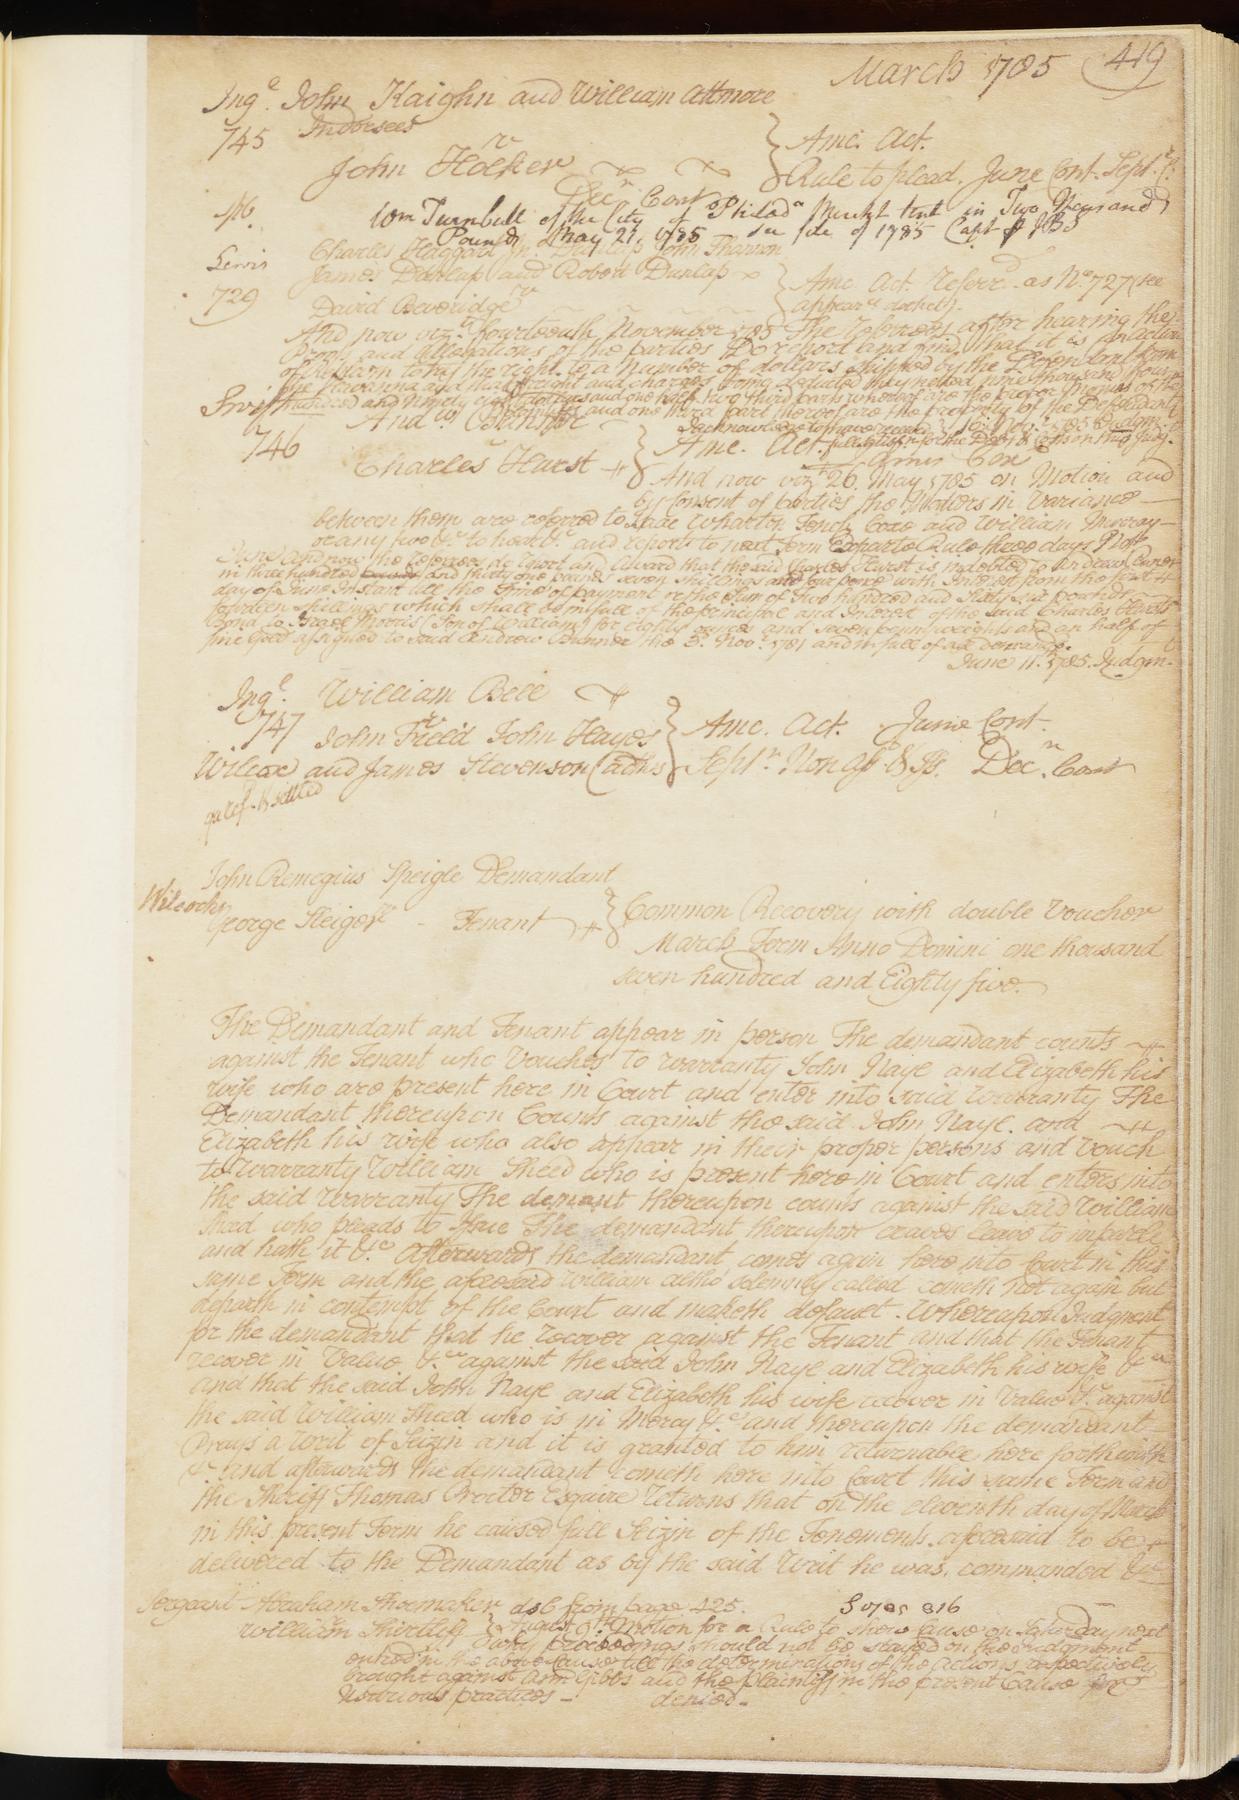 March 1785 419
Ing.e John Kaighn and William Attmore
Indorsees
745
v
John Holker
Ame. Act.
Rule to plead. June Cont. Sept.r
Decr Cont
Wm Turnbull of the City of Philada Mercht tent in Two Thousand
Pounds May 21. 1785 Capt
Lewis
Charles Haggard Dunlap John Shannon
James Dunlap and Robert Dunlap
729
v
David Beveridge
Ame Act. Referr. as No 727 (see
appearce docket).
And now vizt fourteenth November 1785 The Referees after hearing the
Proofs and Allegations of the parties Do report and find that it is an action
to try the right to a Number of dollars shipped by the Defendant from
the Havanna and that freight and charges being deducted they netted nine thousand four
hundred and ninety eight dollars and one half two third parts whereof are the proper Monies of the
and one third part thereof are the property of the Defendant
Andw Bunner
746
Charles Hurst
Ame. Act.
And now vizt 26. May 1785 on Motion and
by Consent of parties the Matters in Variance
between them are referred to Isaac Wharton Tench Coxe and William Murray
or any two &c to hear &c and report to next Term Exparte Rule three days Notice
June And now the Referees do report an Award that the said Charles Hurst is indebted to Andrew Bunner
in three hundred and thirty one pounds seven shillings and four pence with Interest from the first
day of June Instant till the Time of payment of the Sum of Two hundred and Sixty six pounds
fourteen shillings which shall be in full of the principal and Interest of the said Charles Hursts
Bond to Israel Morris (Son of William) for eighty ounces and seven pennyweights and an half of
fine Gold assigned to said Andrew Bunner the 3d Novr 1781 and in full of all demands.
June 11th 1785. Judgmt.
Ing.e William Bell
747
v
John Field John Hayes
Wilcox and James Stevenson (adms
Ame. Act. June Cont.
Septr Non &c Decr. Cont
settled
John Remegius Speigle Demandant
Wilcocks
George Steiger - Tenant
Common Recovery with double Voucher
March Term Anno Domini one thousand
seven hundred and Eighty five.
The Demandant and Tenant appear in person The demandant counts
against the Tenant who Vouches to warranty John Nayl and Elizabeth his
wife who are present here in Court and enter into said Warranty The
Demandant thereupon Counts against the said John Nayl. and
Elizabeth his wife who also appear in their proper persons and Vouch
to Warranty William Sheed who is present here in Court and enters into
the said Warranty The demant thereupon counts against the said William
Sheed who pleads to Issue The demandant thereupon craves leave to imparle
and hath it &c Afterwards the demandant comes again here into Court in this
same Term and the aforesaid William altho' solemnly called cometh not again but
departh in contempt of the Court and maketh default. Whereupon Judgment
for the demandant that he recover against the Tenant and that the Tenant
recover in Value &c against the said John Nayl and Elizabeth his wife &c
and that the said John Nayl and Elizabeth his wife recover in Value &c against
the said William Sheed who is in Mercy &c and thereupon the demandant
Prays a Writ of Seizin and it is granted to him returnable here forthwith
&c And afterwards the demandant cometh here into Court this same Term and
the Sheriff Thomas Procter Esquire returns that on the eleventh day of March
in this present Term he caused full Seizin of the Tenements aforesaid to be
delivered to the Demandant as by the said Writ he was commanded &c
Sergeant Abraham Shoemaker dsb from page 425.
v
William Shirtliff
August 9th Motion for a Rule to shew Cause on Saturday next
why proceedings should not be stayed on the Judgment
entred in the above Cause till the determinations of the Actions respectively
brought against Ann Gibbs and the plaintiff in the present Cause for
Usurious practices - denied -